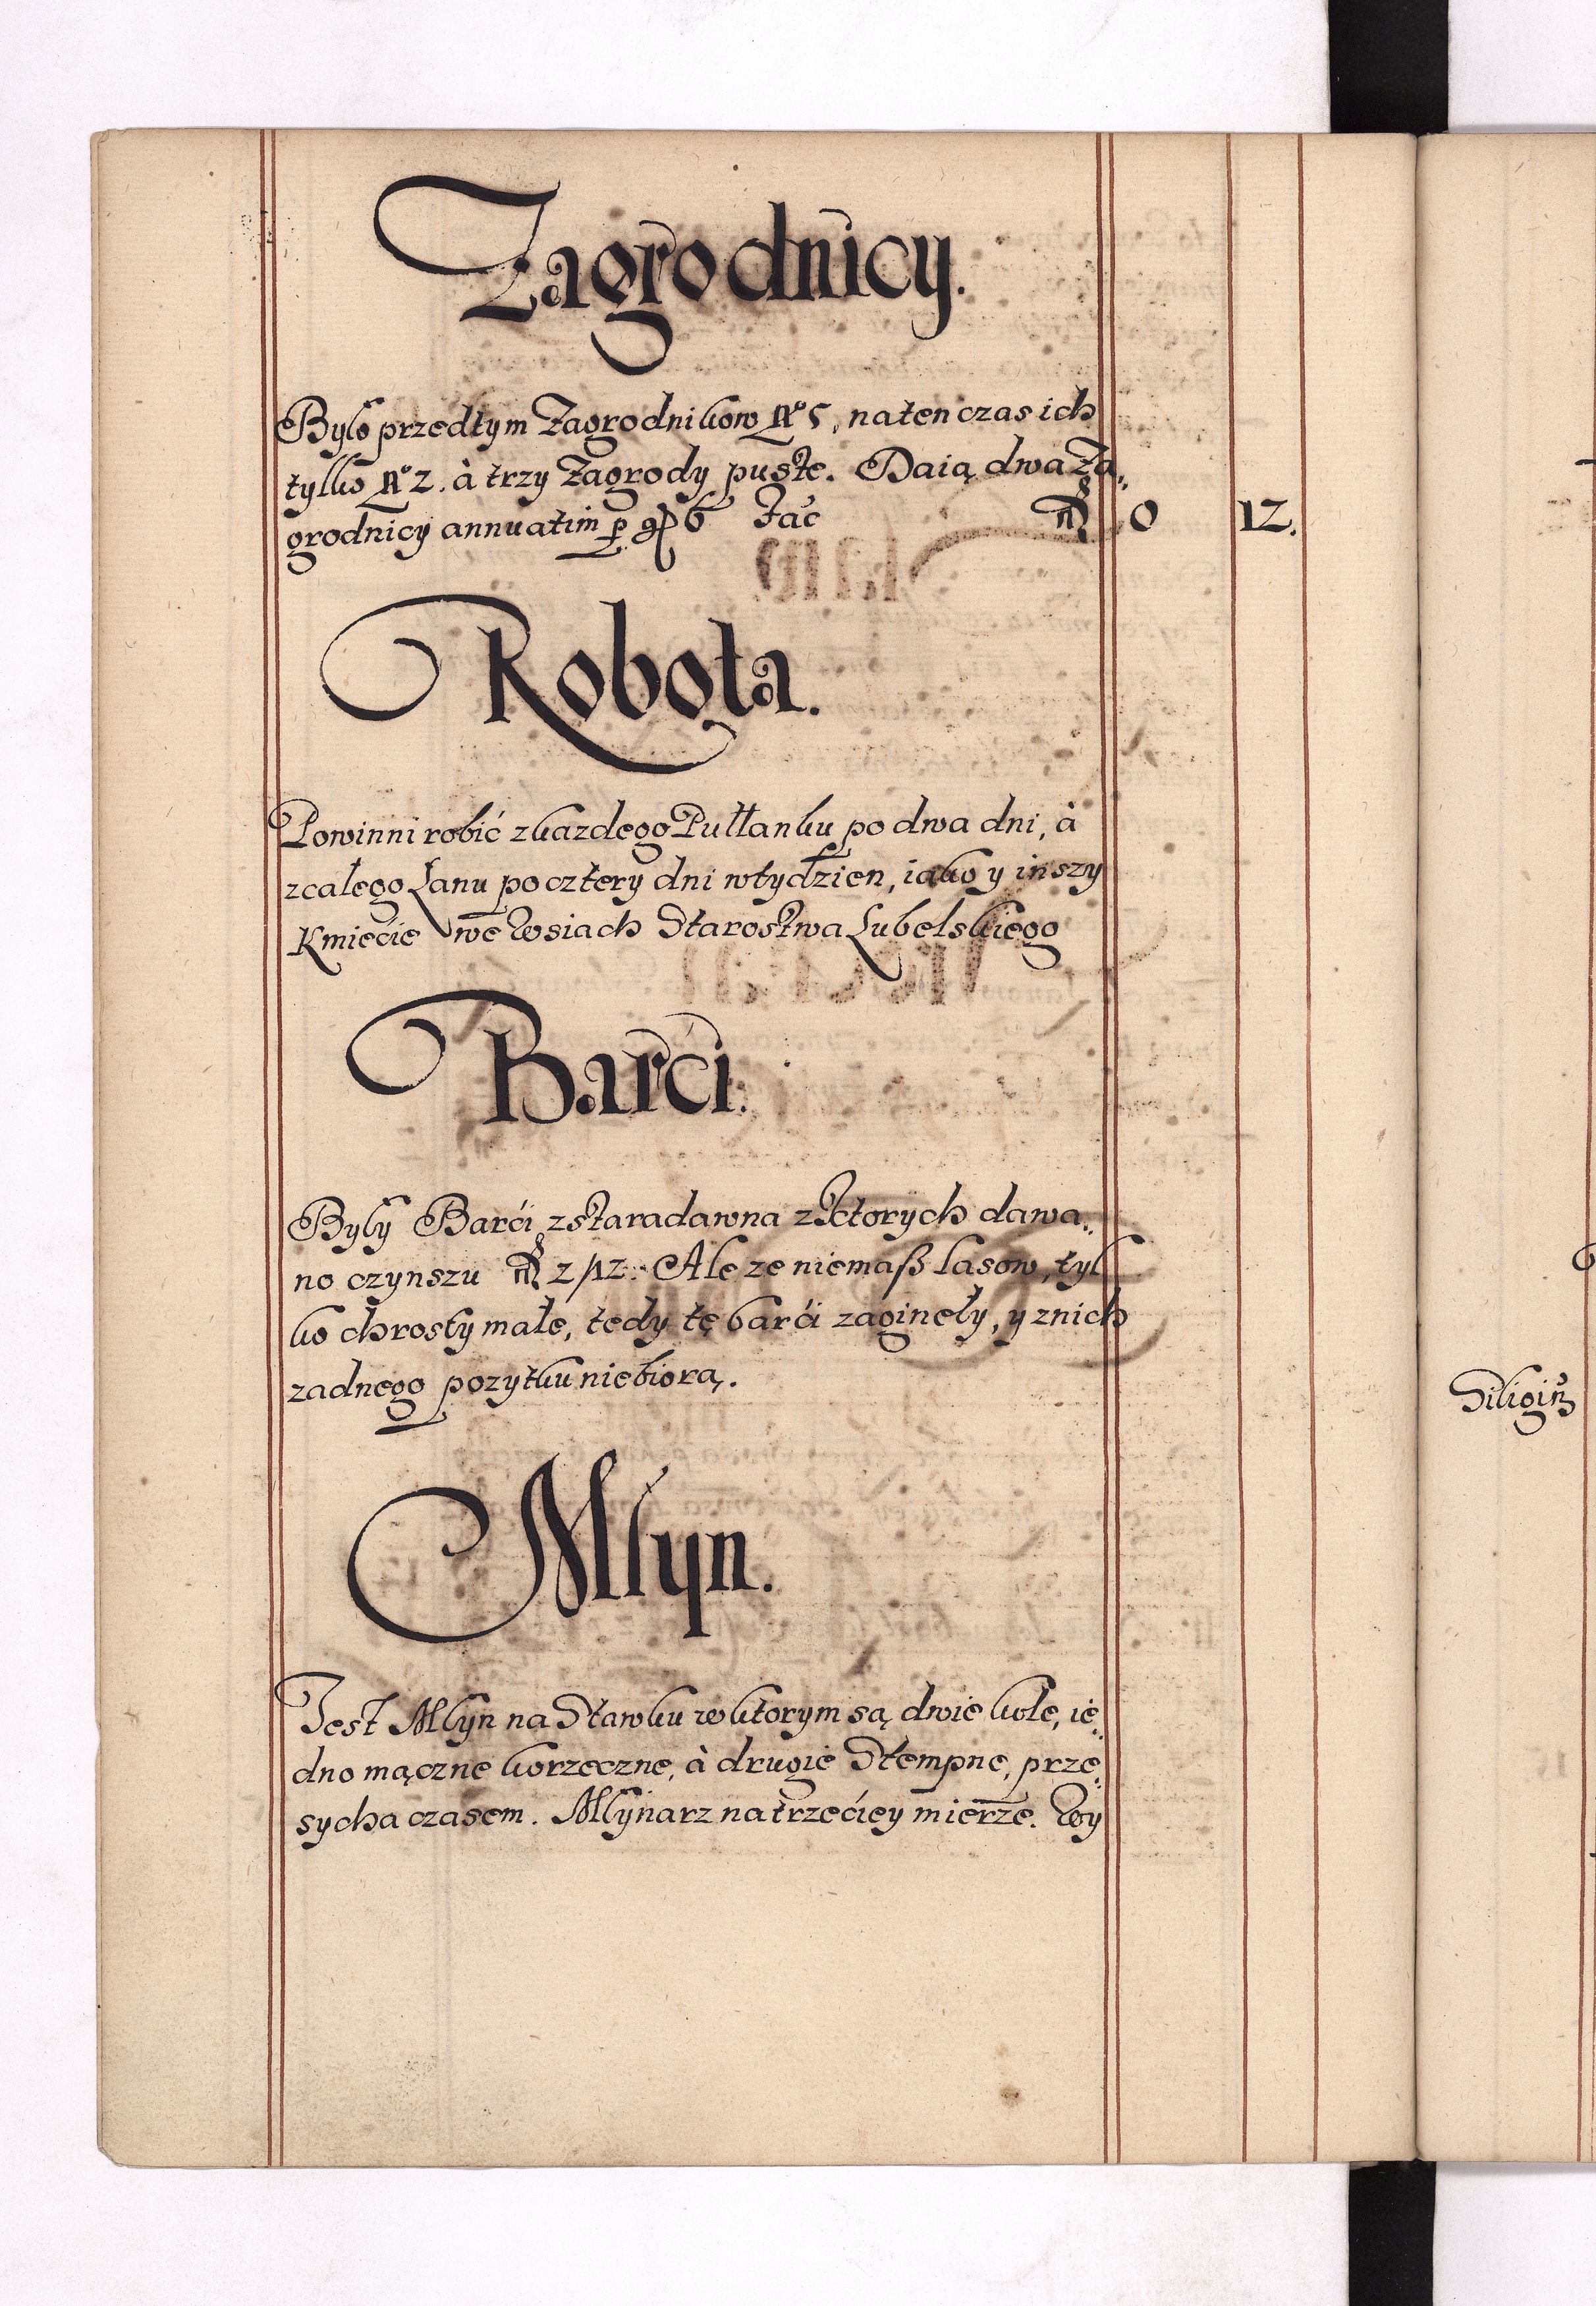 Zagrodnicy.
Było przedtym Zagrodnikow No 5, na ten czas ich
tylko No 2. à trzy Zagrody puste. Daią dwa Za„
grodnicy annuatim p gr 6 fac fl 0 12.
Robota.
Powinni robić z kazdego Pułłanku po dwa dni, à
z całego Łanu po cztery dni w tydzien, iako y inszy
Kmiecie we Wsiach Starostwa Lubelskiego
Barci.
Były Barći z staradawna z ktorych dawa„
no czynszu fl 2/12. Ale ze niemaß lasow, tyl
ko chrosty małe, tedy te barći zagineły, y z nich
zadnego pozytku niebiorą.
Młyn.
Jest Młyn na Stawku w ktorym są dwie kole, ie„
dno mączne korzeczne, à drugie Stempne, prze„
sycha czasem. Młynarz na trzećiey mierze. Wy